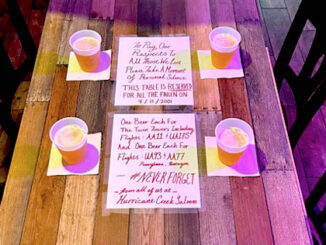 To Pay Our
Respects To
All Those We Lost
Please Take A Moment
of Personal Silence.
THIS TABLE IS RESERVED
FOR ALL THE FALLEN ON
9/11/2001
One Beer Each For
The Twin Towers Including
Flights - AA11 & UA175
And One Beer Each For
Flights - UA93 & AA77
Pennsylvania Pentagon
#NEVER FORGET
from all of us at
Hurricane Creek Saloon